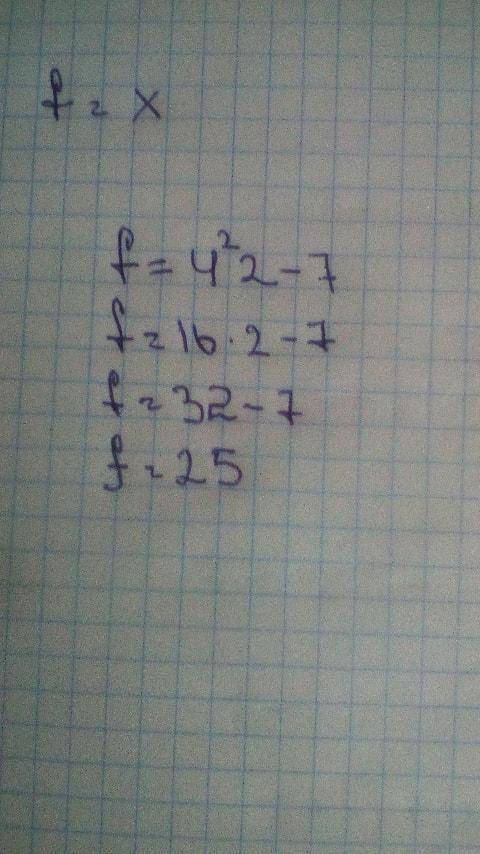 f = x
f = 4²2 - 7
f = 16 · 2 - 7
f = 32 - 7
f = 25